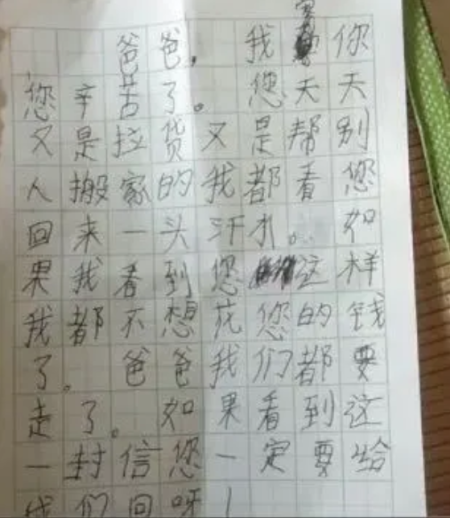 爸爸,我要你
您辛苦了。您天天
又是拉货又是帮别
人搬家的我都看您
回来一头汗水。如
果我看到您这样
我都不想花您的钱
了。爸爸我们都要
走了。如果看到这
一封信您一定要给
我们回呀!